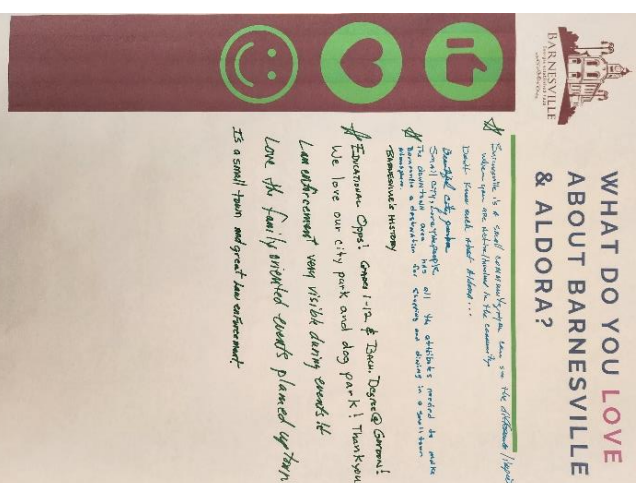 BARNESVILLE
WHAT DO YOU LOVE
ABOUT BARNESVILLE
& ALDORA?
Barnesville is a small community, you can see the difference
when you are active/involved in the community
Don't know much about Aldora...
Beautiful city garden
Small city, Love the people
The downtown area has all the attributes needed to make
Barnesville a destination for shopping and dining in a small town
atmosphere.
BARNESVILLE'S HISTORY
EDUCATIONAL Opps! Grades 1-12 & Bach. Degree @ Gordon!
We love our city park and dog park! Thank you
Law enforcement very visible during events
Love the family oriented events planned up town
Is a small town and great law enforcement.